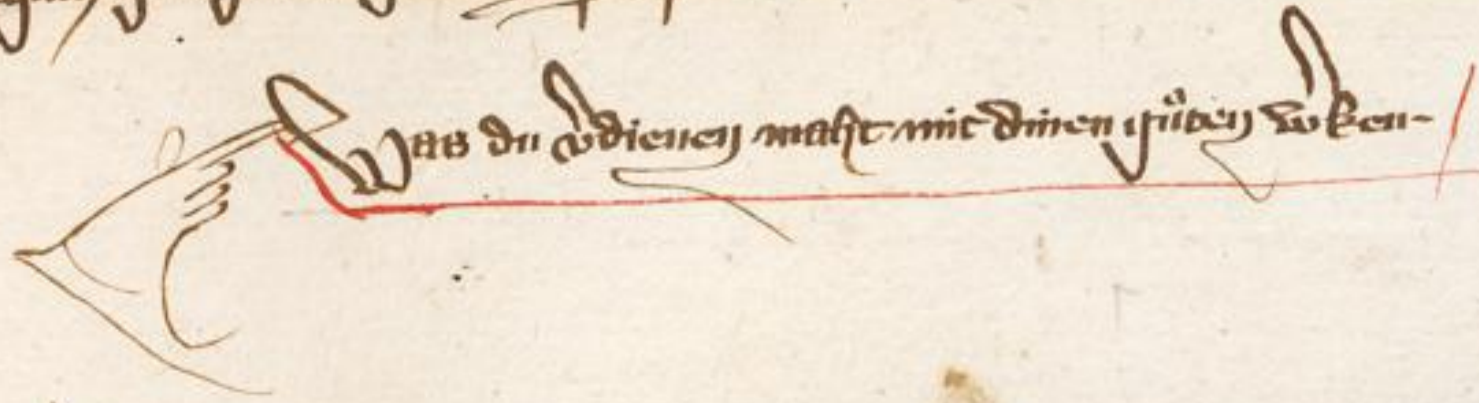 Was du v̾dienen maht mit dinen gůten w̾ken